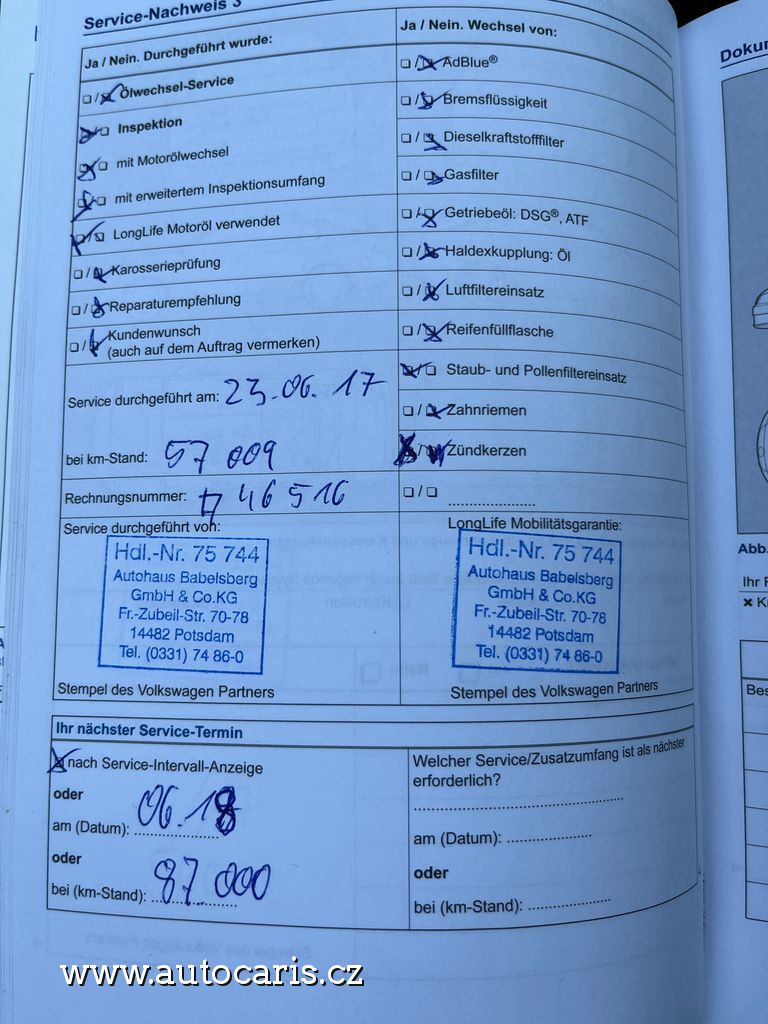 Service-Nachweis 3
Ja / Nein. Durchgeführt wurde:
❏ / ❏ Ölwechsel-Service
❏ / ❏ Inspektion
❏ / ❏ mit Motorölwechsel
❏ / ❏ mit erweitertem Inspektionsumfang
❏ / ❏ LongLife Motoröl verwendet
❏ / ❏ Karosserieprüfung
❏ / ❏ Reparaturempfehlung
❏ / ❏ Kundenwunsch
(auch auf dem Auftrag vermerken)
Service durchgeführt am: 23.06.17
bei km-Stand: 57 009
Rechnungsnummer: 46516
Service durchgeführt von:
Hdl.-Nr. 75 744
Autohaus Babelsberg
GmbH & Co.KG
Fr.-Zubeil-Str. 70-78
14482 Potsdam
Tel. (0331) 74 86-0
Stempel des Volkswagen Partners
Ja / Nein. Wechsel von:
❏ / ❏ AdBlue®
❏ / ❏ Bremsflüssigkeit
❏ / ❏ Dieselkraftstofffilter
❏ / ❏ Gasfilter
❏ / ❏ Getriebeöl: DSG®, ATF
❏ / ❏ Haldexkupplung: Öl
❏ / ❏ Luftfiltereinsatz
❏ / ❏ Reifenfüllflasche
❏ / ❏ Staub- und Pollenfiltereinsatz
❏ / ❏ Zahnriemen
❏ / ❏ Zündkerzen
❏ / ❏ ......................
LongLife Mobilitätsgarantie:
Hdl.-Nr. 75 744
Autohaus Babelsberg
GmbH & Co.KG
Fr.-Zubeil-Str. 70-78
14482 Potsdam
Tel. (0331) 74 86-0
Stempel des Volkswagen Partners
Ihr nächster Service-Termin
nach Service-Intervall-Anzeige
oder
am (Datum): 06.18
oder
bei (km-Stand): 87.000
Welcher Service/Zusatzumfang ist als nächster
erforderlich?
am (Datum): ......................
oder
bei (km-Stand): ......................
Abb.
www.autocaris.cz